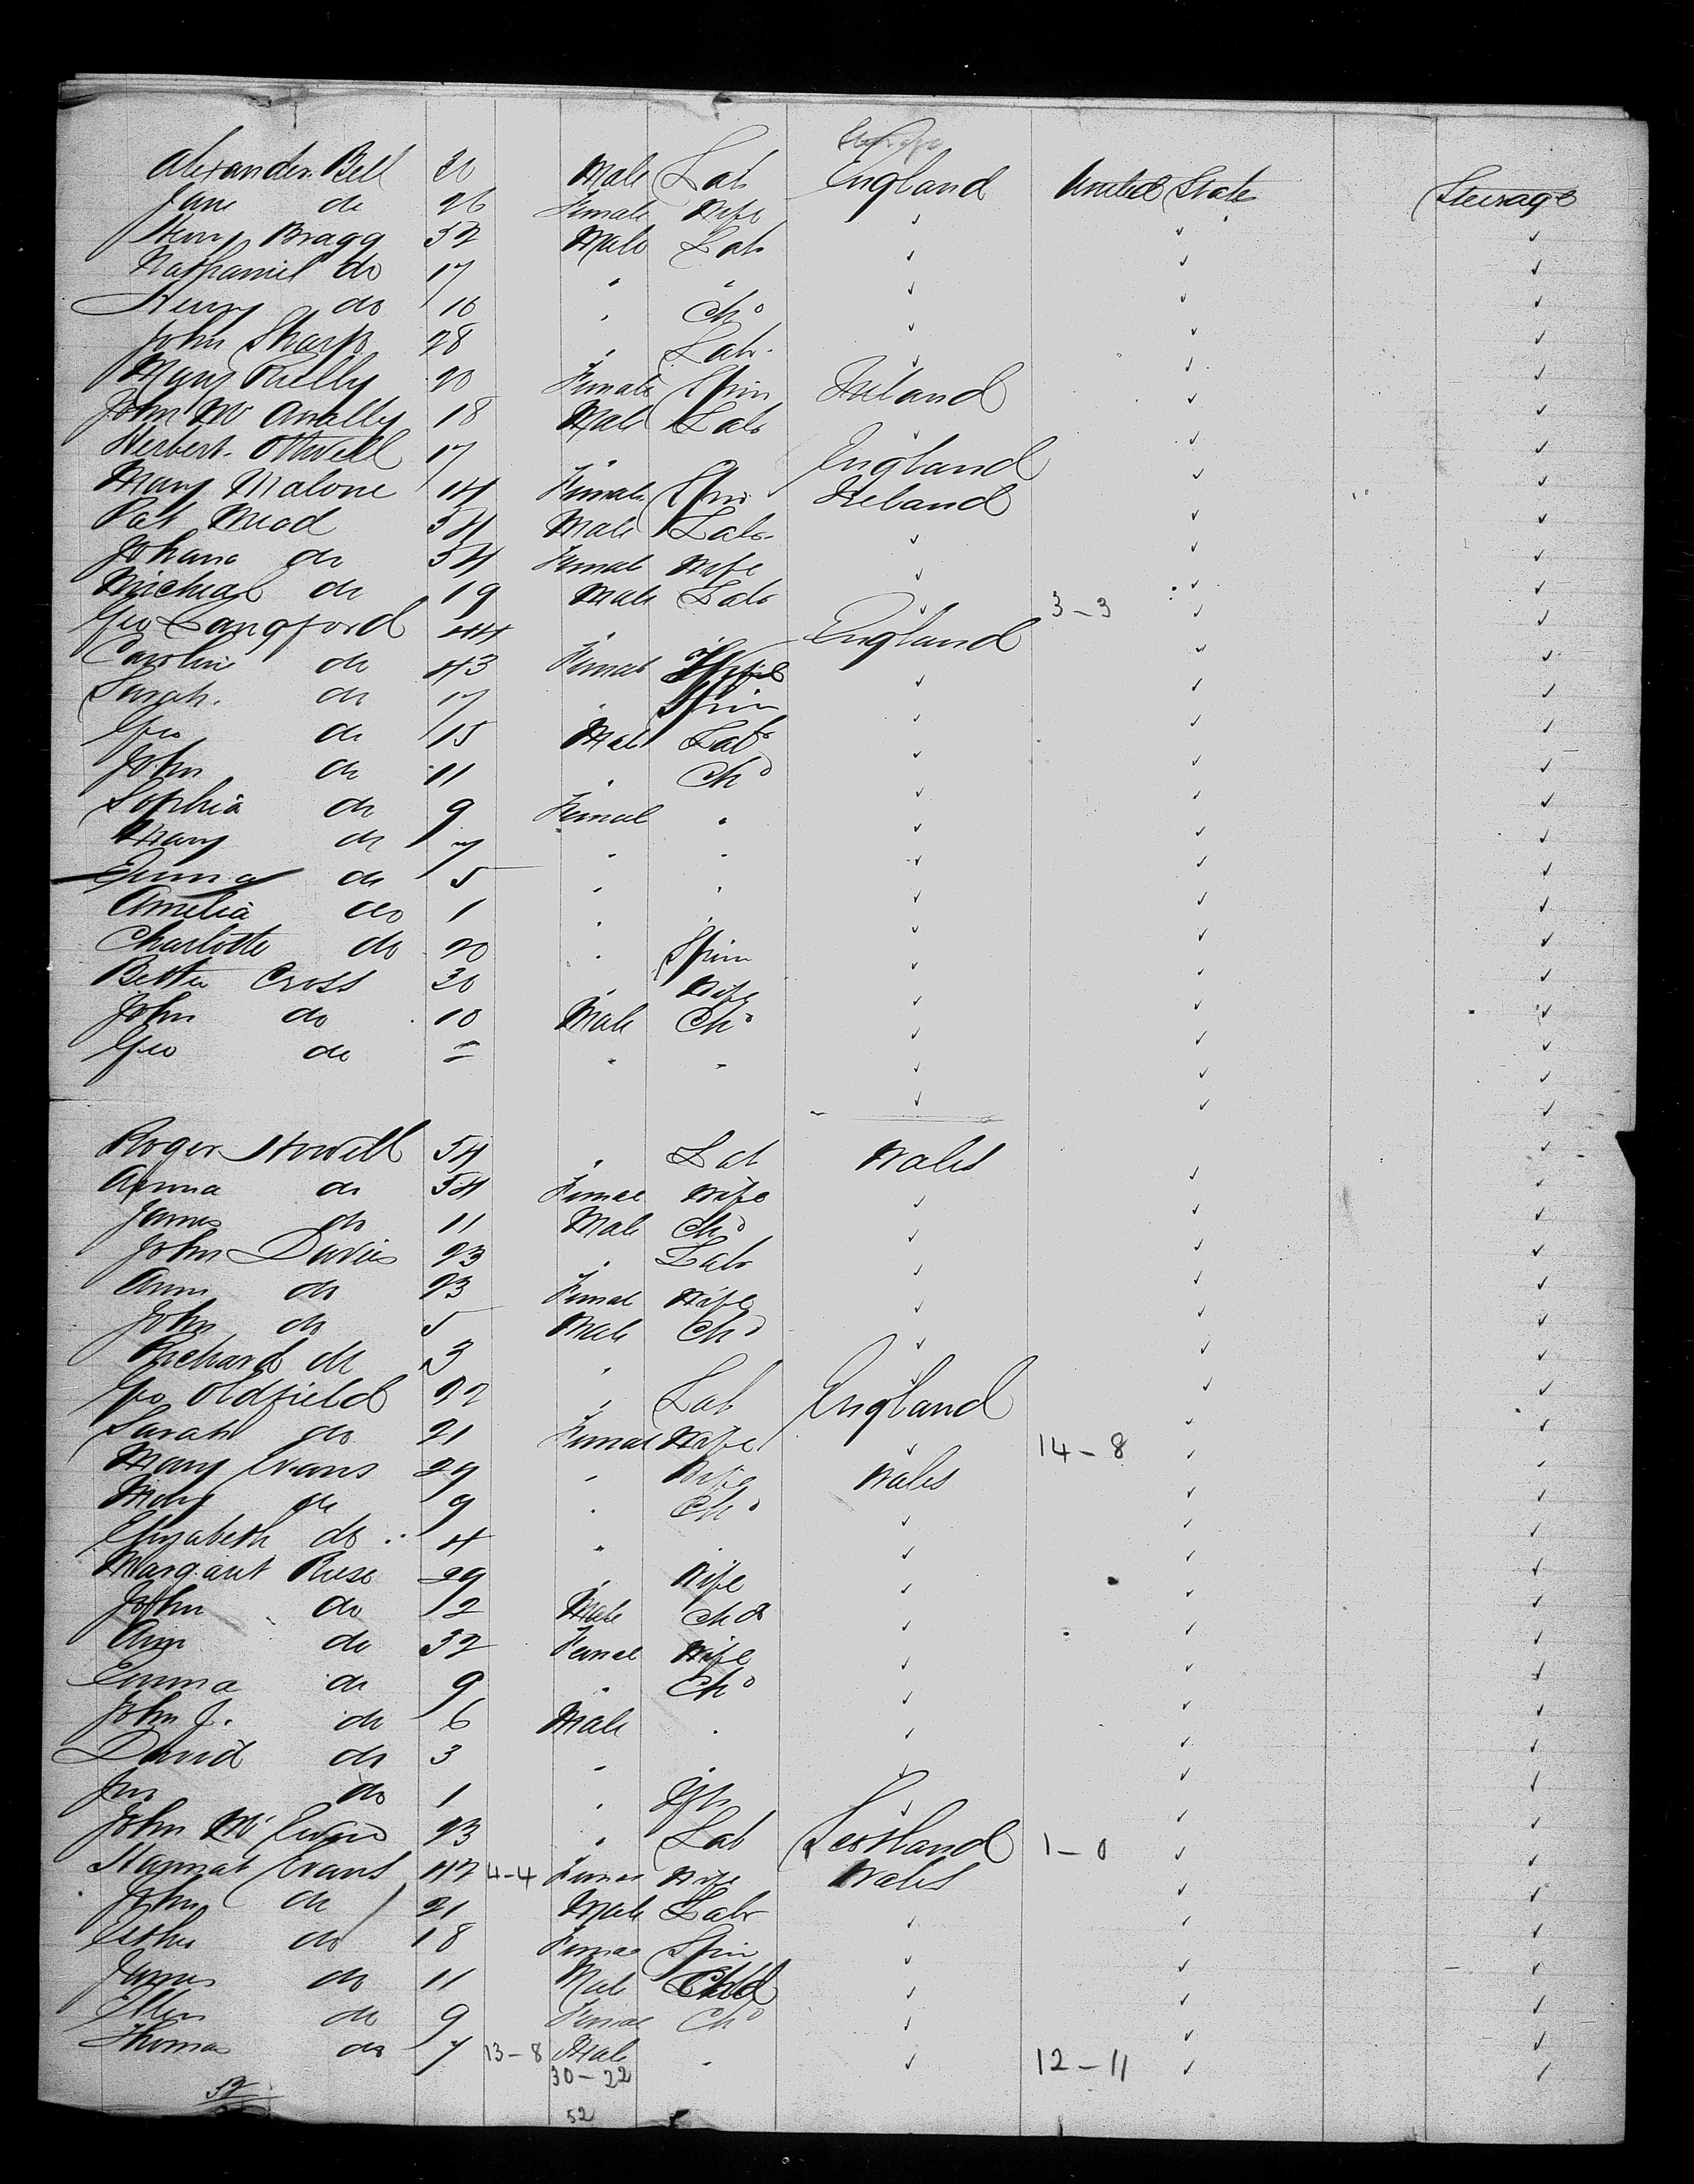 Alexander Bell 30 Male Lab England United State Steerage
Jane do 26 Female Wife
Henry Bragg 52 Male Lab
Nathaniel do 17 " "
Henry do 10 " Chd
John Sharp 28 " Lab
Mary Reilly 20 Female Spin Ireland
John McAnally 18 Male Lab
Herbert Othwell 17 " " England
Mary Malone 14 Female Spin Ireland
Pat Mead 54 Male Lab
Johana do 54 Female Wife
Micheal do 19 Male Lab 3-3
Geo Langford 44 " " England
Caroline do 43 Female Wife
Sarah do 17 " Spin
Geo do 15 Male Lab
John do 11 " Chd
Sophia do 9 Female "
Mary do 7 " "
Emma do 5 " "
Amelia do 1 " "
Charlotte do 20 " Spin
Cross 30 " Wife
John do 10 Male Chd
Geo do " "
Roger Howell 54 " Lab Wales
Anna do 54 Female Wife
James do 11 Male Chd
John Davies 23 " Lab
Ann do 23 Female Wife
John do 5 Male Chd
Richard do 3 "
Geo Oldfield 22 " Lab England
Sarah do 21 Female Wife 14-8
Mary Evans 29 " Wife Wales
Mary do 9 " Chd
Elizabeth do 4 " "
Margaret Reese 29 " Wife
John do 2 Male Chd
Ann do 32 Female Wife
Emma do 9 " Chd
John J. do 6 Male "
David do 3 " "
do 1 " Inf
John Mc 23 " Lab Scotland 1-0
Hannah Evans 42 4-4 Female Wife Wales
John do 21 Male Lab
Esther do 18 Female Spin
James do 11 Male Child
Ellen do 9 Female Chd
Thomas do 7 13-8 Male " 12-11
52 30-22
52